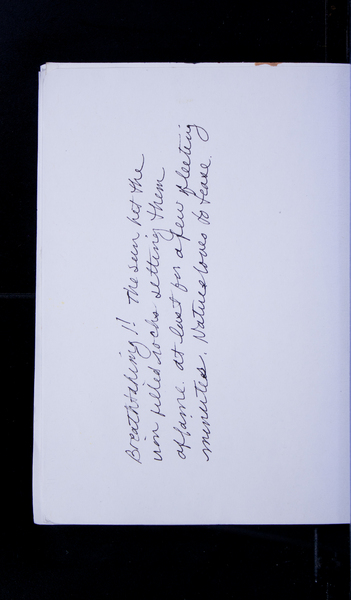 Breathtaking!! The sun hit the
iron filled rocks setting them
aflame. at least for a few fleeting
minutes. Nature loves to tease.